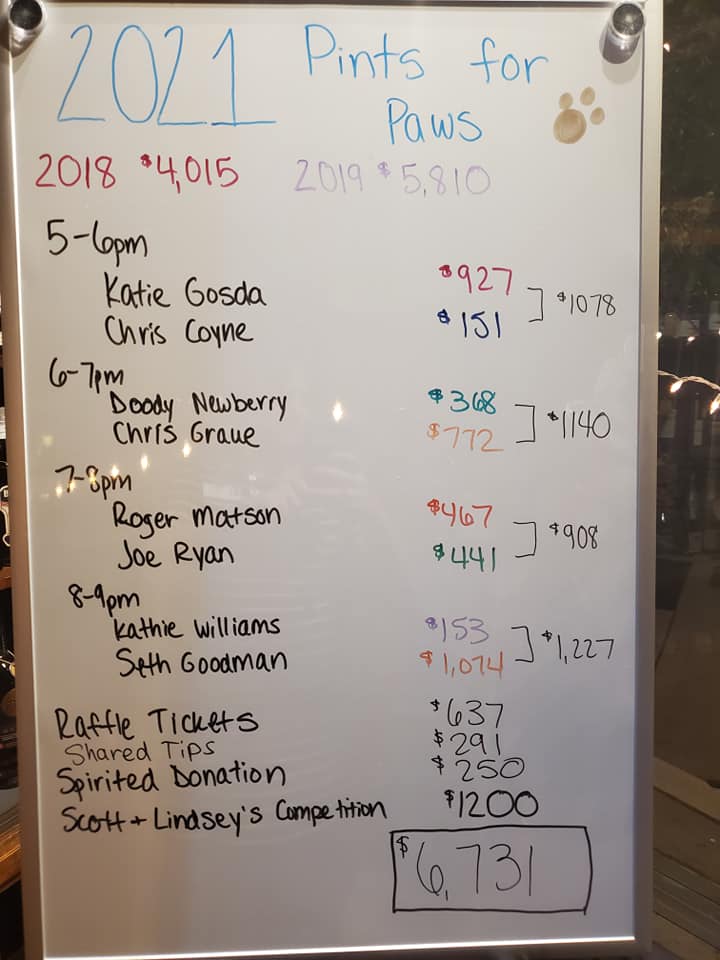 2021 Pints for
Paws
2018 $4,015 2019 $5,810
5-6pm
Katie Gosda $927
Chris Coyne $151 ] $1078
6-7pm
Doody Newberry $368
Chris Graue $772 ] $1140
7-8pm
Roger Matson $467
Joe Ryan $441 ] $908
8-9pm
Kathie Williams $153
Seth Goodman $1,074 ] $1,227
Raffle Tickets $637
Shared Tips $291
Spirited Donation $250
Scott + Lindsey's Competition $1200
$6,731